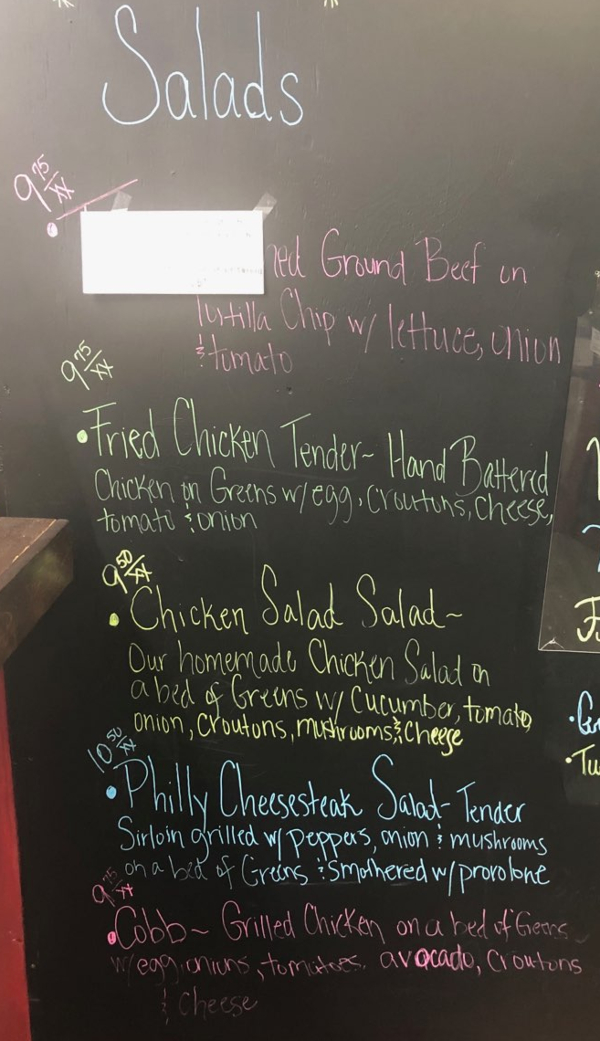 Salads
9 75/xx
Ground Beef on
Tortilla Chip w/ lettuce, onion
& tomato
9 75/xx
• Fried Chicken Tender~ Hand Battered
Chicken on Greens w/ egg, croutons, cheese,
tomato & onion
9 50/xx
• Chicken Salad Salad~
Our homemade Chicken Salad on
a bed of Greens w/ Cucumber, tomato,
onion, croutons, mushrooms & cheese
10 50/xx
• Philly Cheesesteak Salad- Tender
Sirloin grilled w/ peppers, onion & mushrooms
on a bed of Greens & smothered w/ provolone
9 75/xx
• Cobb~ Grilled Chicken on a bed of Greens
w/ egg, onions, tomatoes, avocado, croutons
& cheese